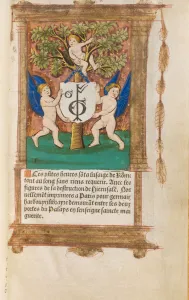 Ces p̃ñtes heures sõt a lusaige de Rõm
tout au long sans riens requerir. Auec les
figures de la destruction de Hierusalẽ. Nou
uellemẽt imprimees a Paris pour germain
hardouyn libraire demourant entre les deux
portes du Palays a lenseigne saincte mar
guerite.